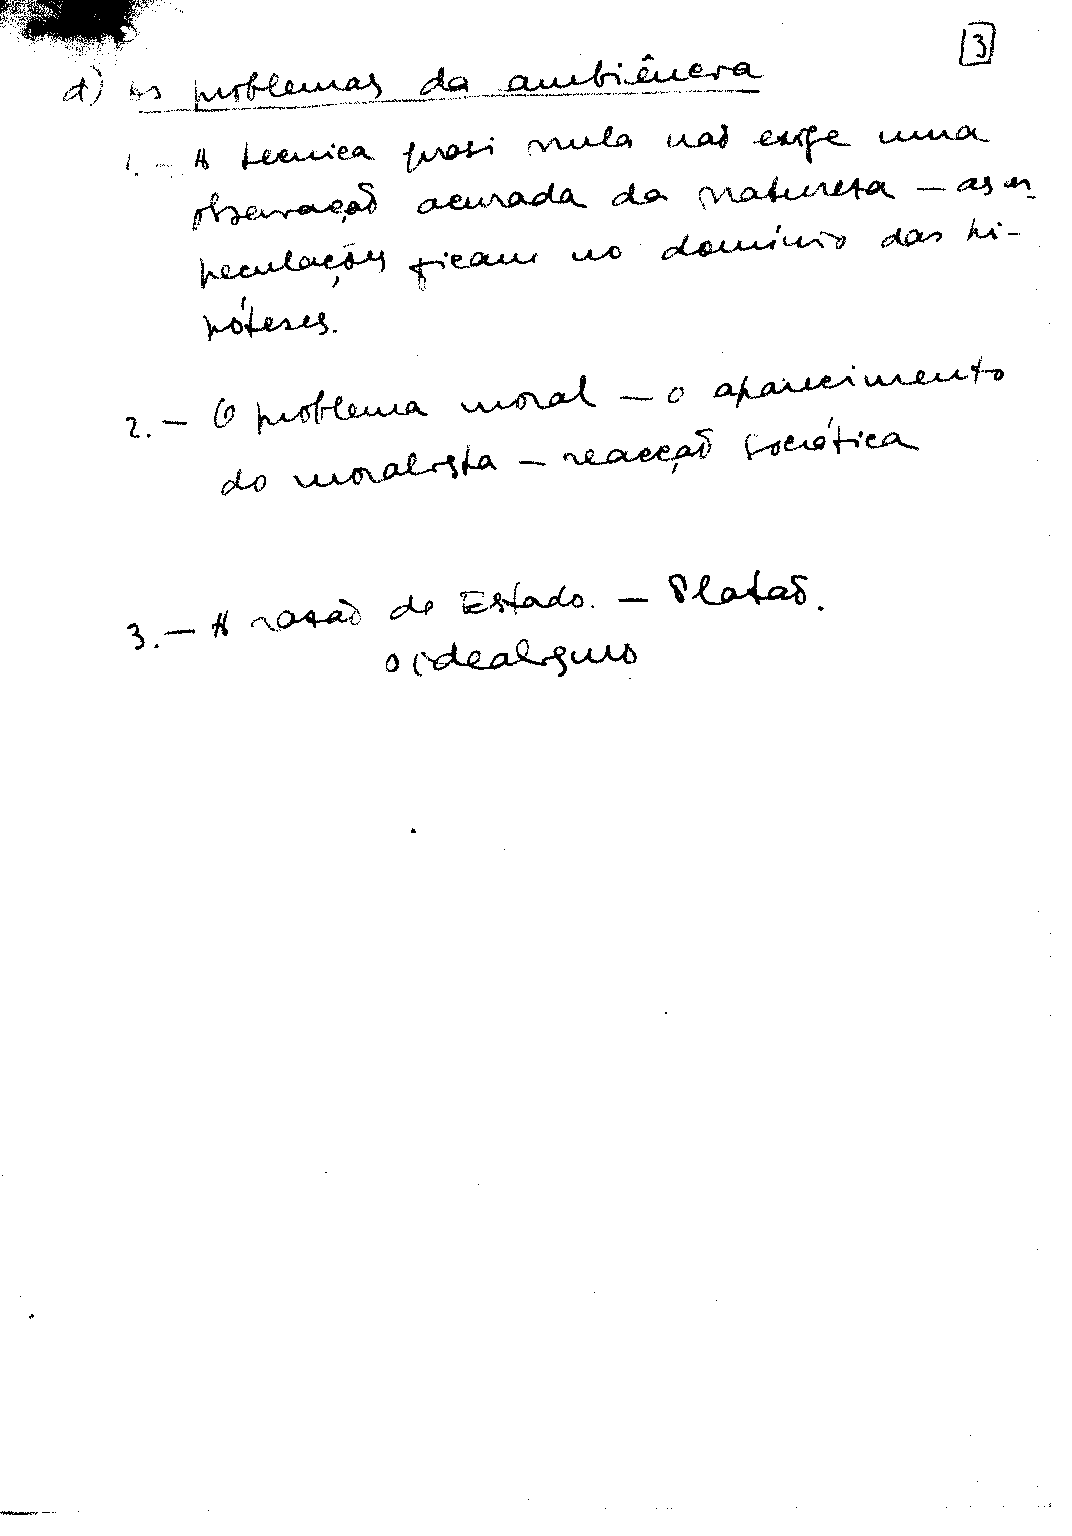 3
d) Os problemas da ambiência
1. – A tecnica quasi nula não exige uma
observação acurada da natureza – as es-
peculações ficam no domínio das hi-
póteses.
2. – O problema moral – o aparecimento
do moralista – reacção socrática
3. – A razão de Estado. – Platão.
o idealismo